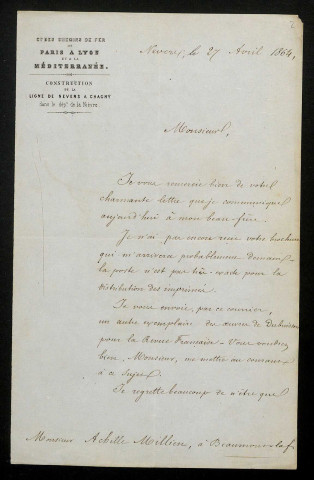 CIE DES CHEMINS DE FER
DE
PARIS À LYON
ET À LA
MÉDITERRANÉE.
CONSTRUCTION
DE LA
LIGNE DE NEVERS À CHAGNY
dans le dépt de la Nièvre.
Nevers, le 27 Avril 1864,
Monsieur,
Je vous remercie bien de votre
charmante lettre que je communique
aujourd'hui à mon beau-frère.
Je n'ai pas encore reçu votre brochure
qui m'arrivera probablement demain –
la poste n'est pas très-exacte pour la
distribution des imprimés.
Je vous envoie, par ce courrier,
un autre exemplaire du
pour la Revue Française – Vous voudrez
bien, Monsieur, me mettre au courant
à ce sujet.
Je regrette beaucoup de n'être que
Monsieur Achille Millien, à Beaumont-la-f.